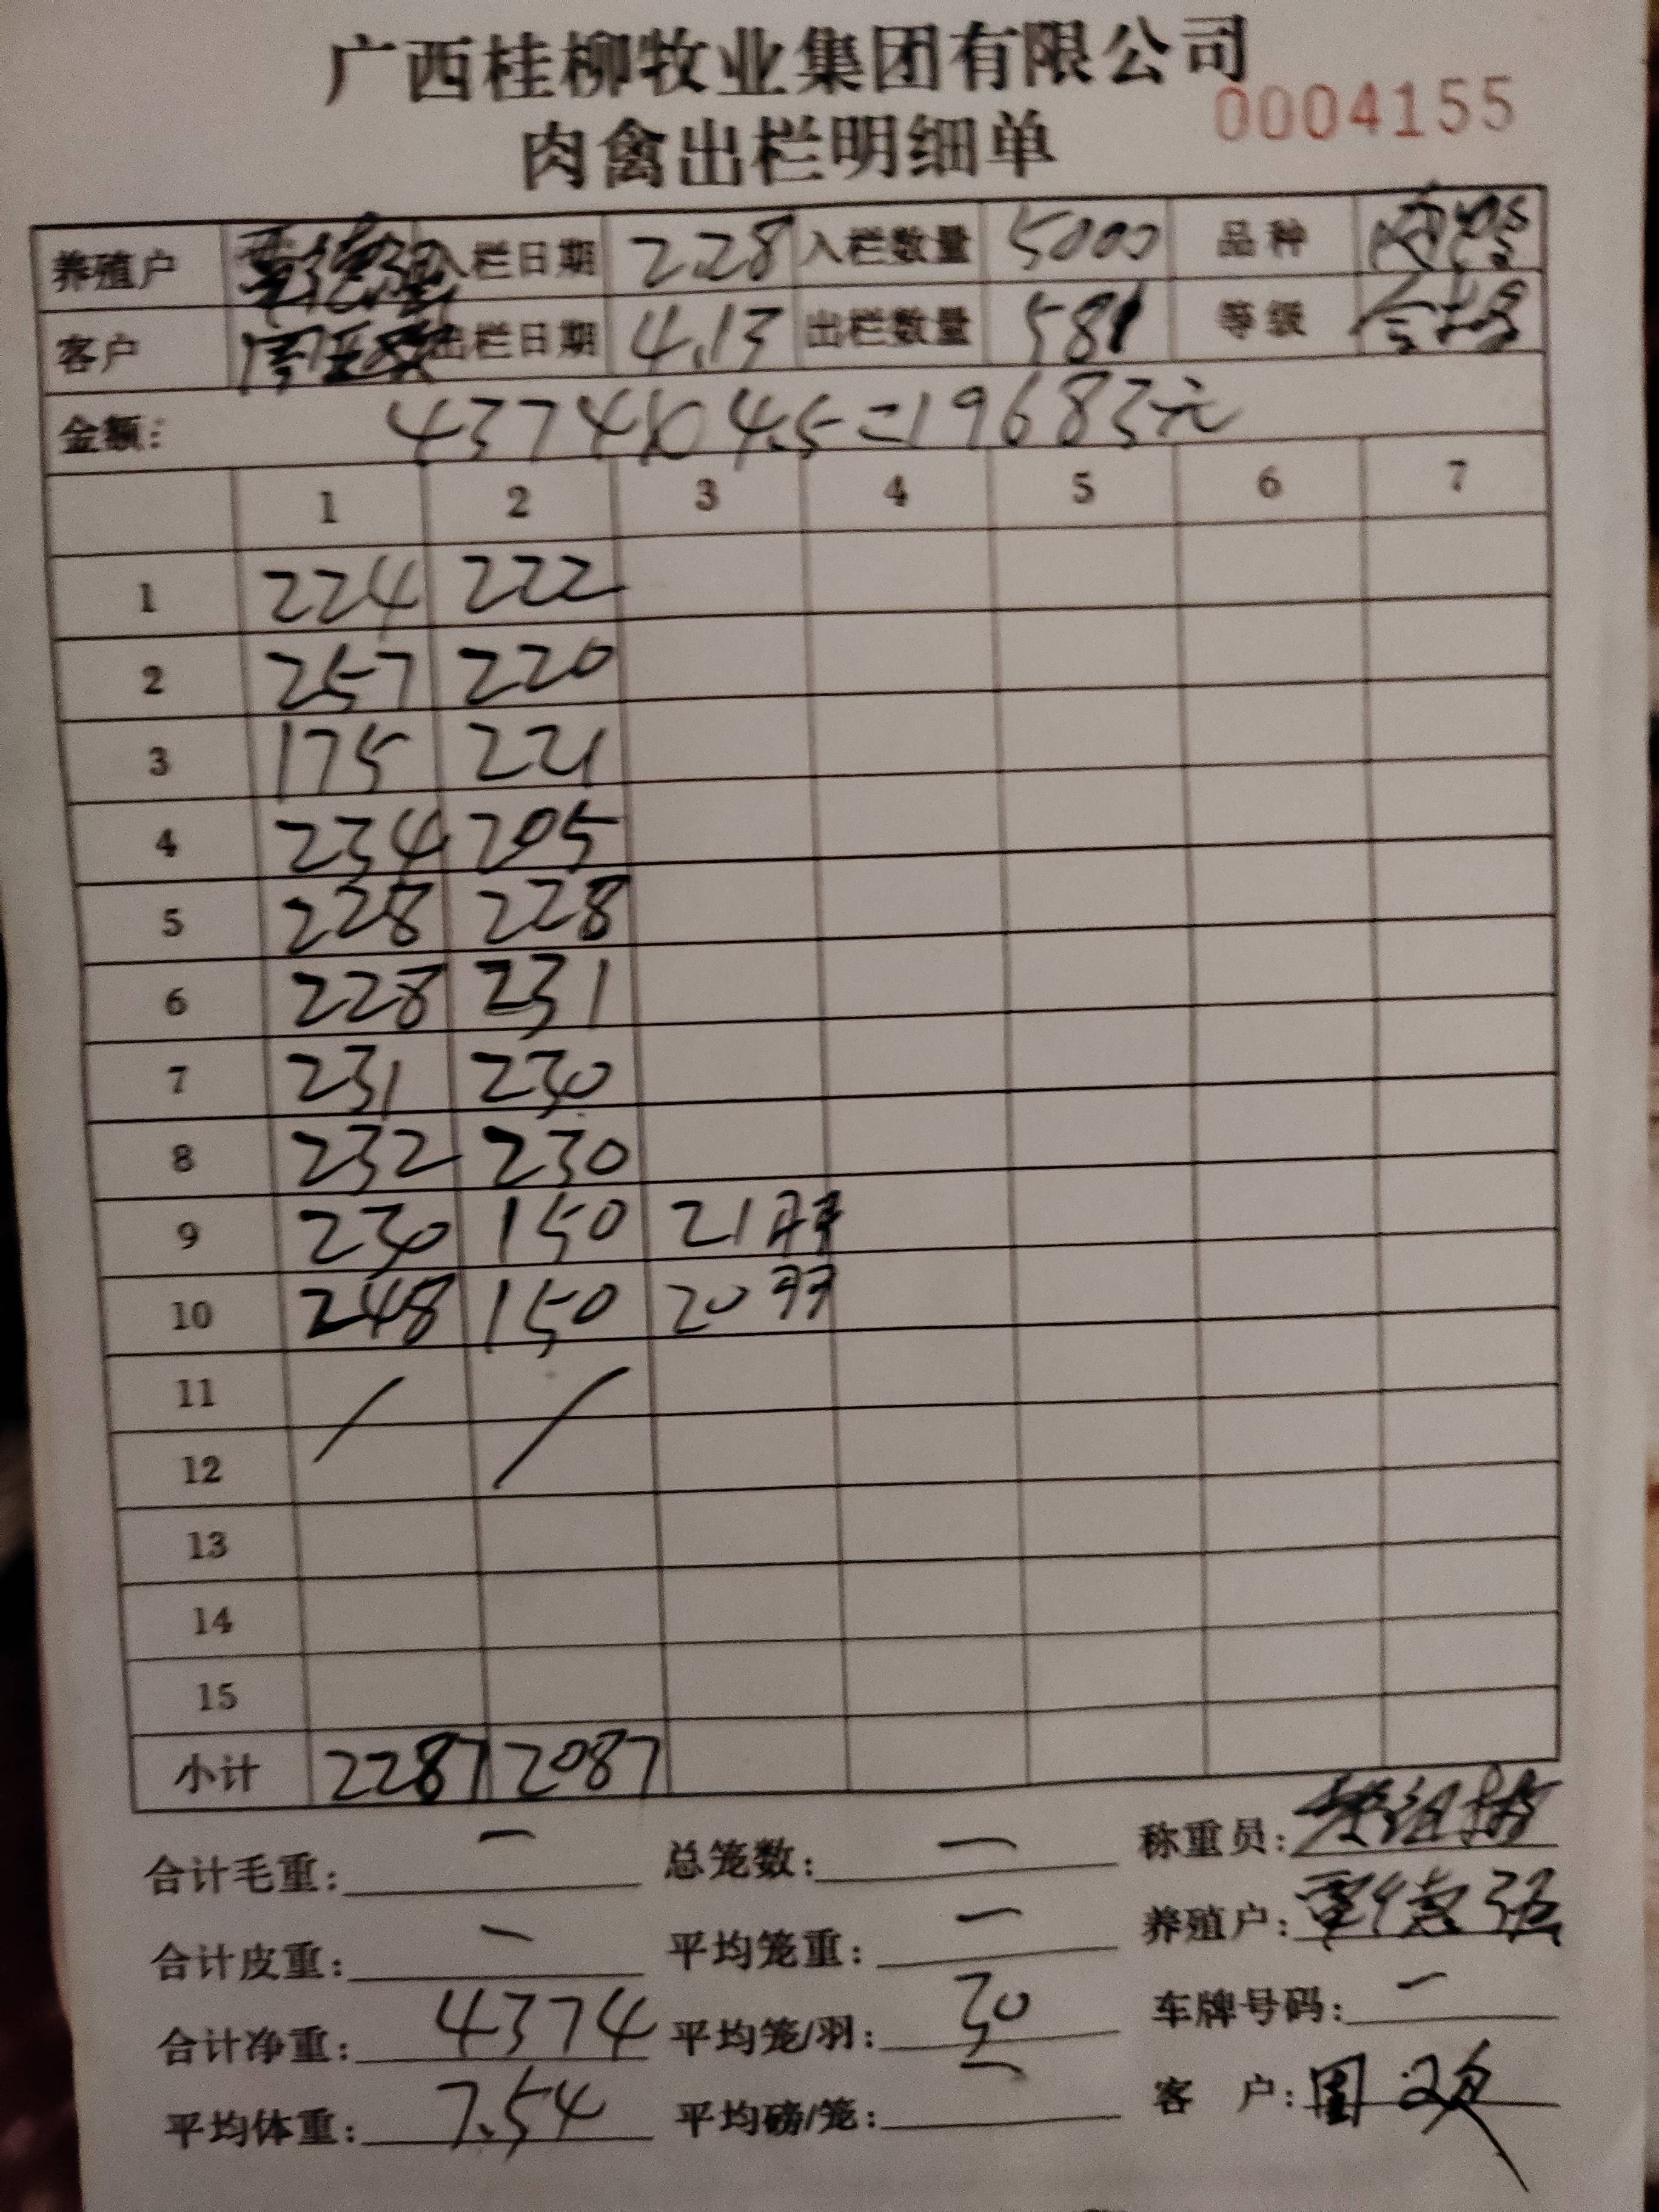 广西桂柳牧业集团有限公司
0004155
肉禽出栏明细单
养殖户 覃德强 入栏日期 2.28 入栏数量 5000 品种
客户 出栏日期 4.13 出栏数量 581 等级
金额: 4374×4.5=19683元
1 2 3 4 5 6 7
1 224 222
2 257 220
3 175 221
4 234 205
5 228 228
6 228 231
7 231 230
8 232 230
9 230 150 21羽
10 248 150 20羽
11 /
12 /
13
14
15
小计 2287 2087
合计毛重: 一 总笼数: 一 称重员:
合计皮重: 一 平均笼重: 一 养殖户: 覃德强
合计净重: 4374 平均笼/羽: 30 车牌号码: 一
平均体重: 7.54 平均磅/笼: 一 客 户: 周